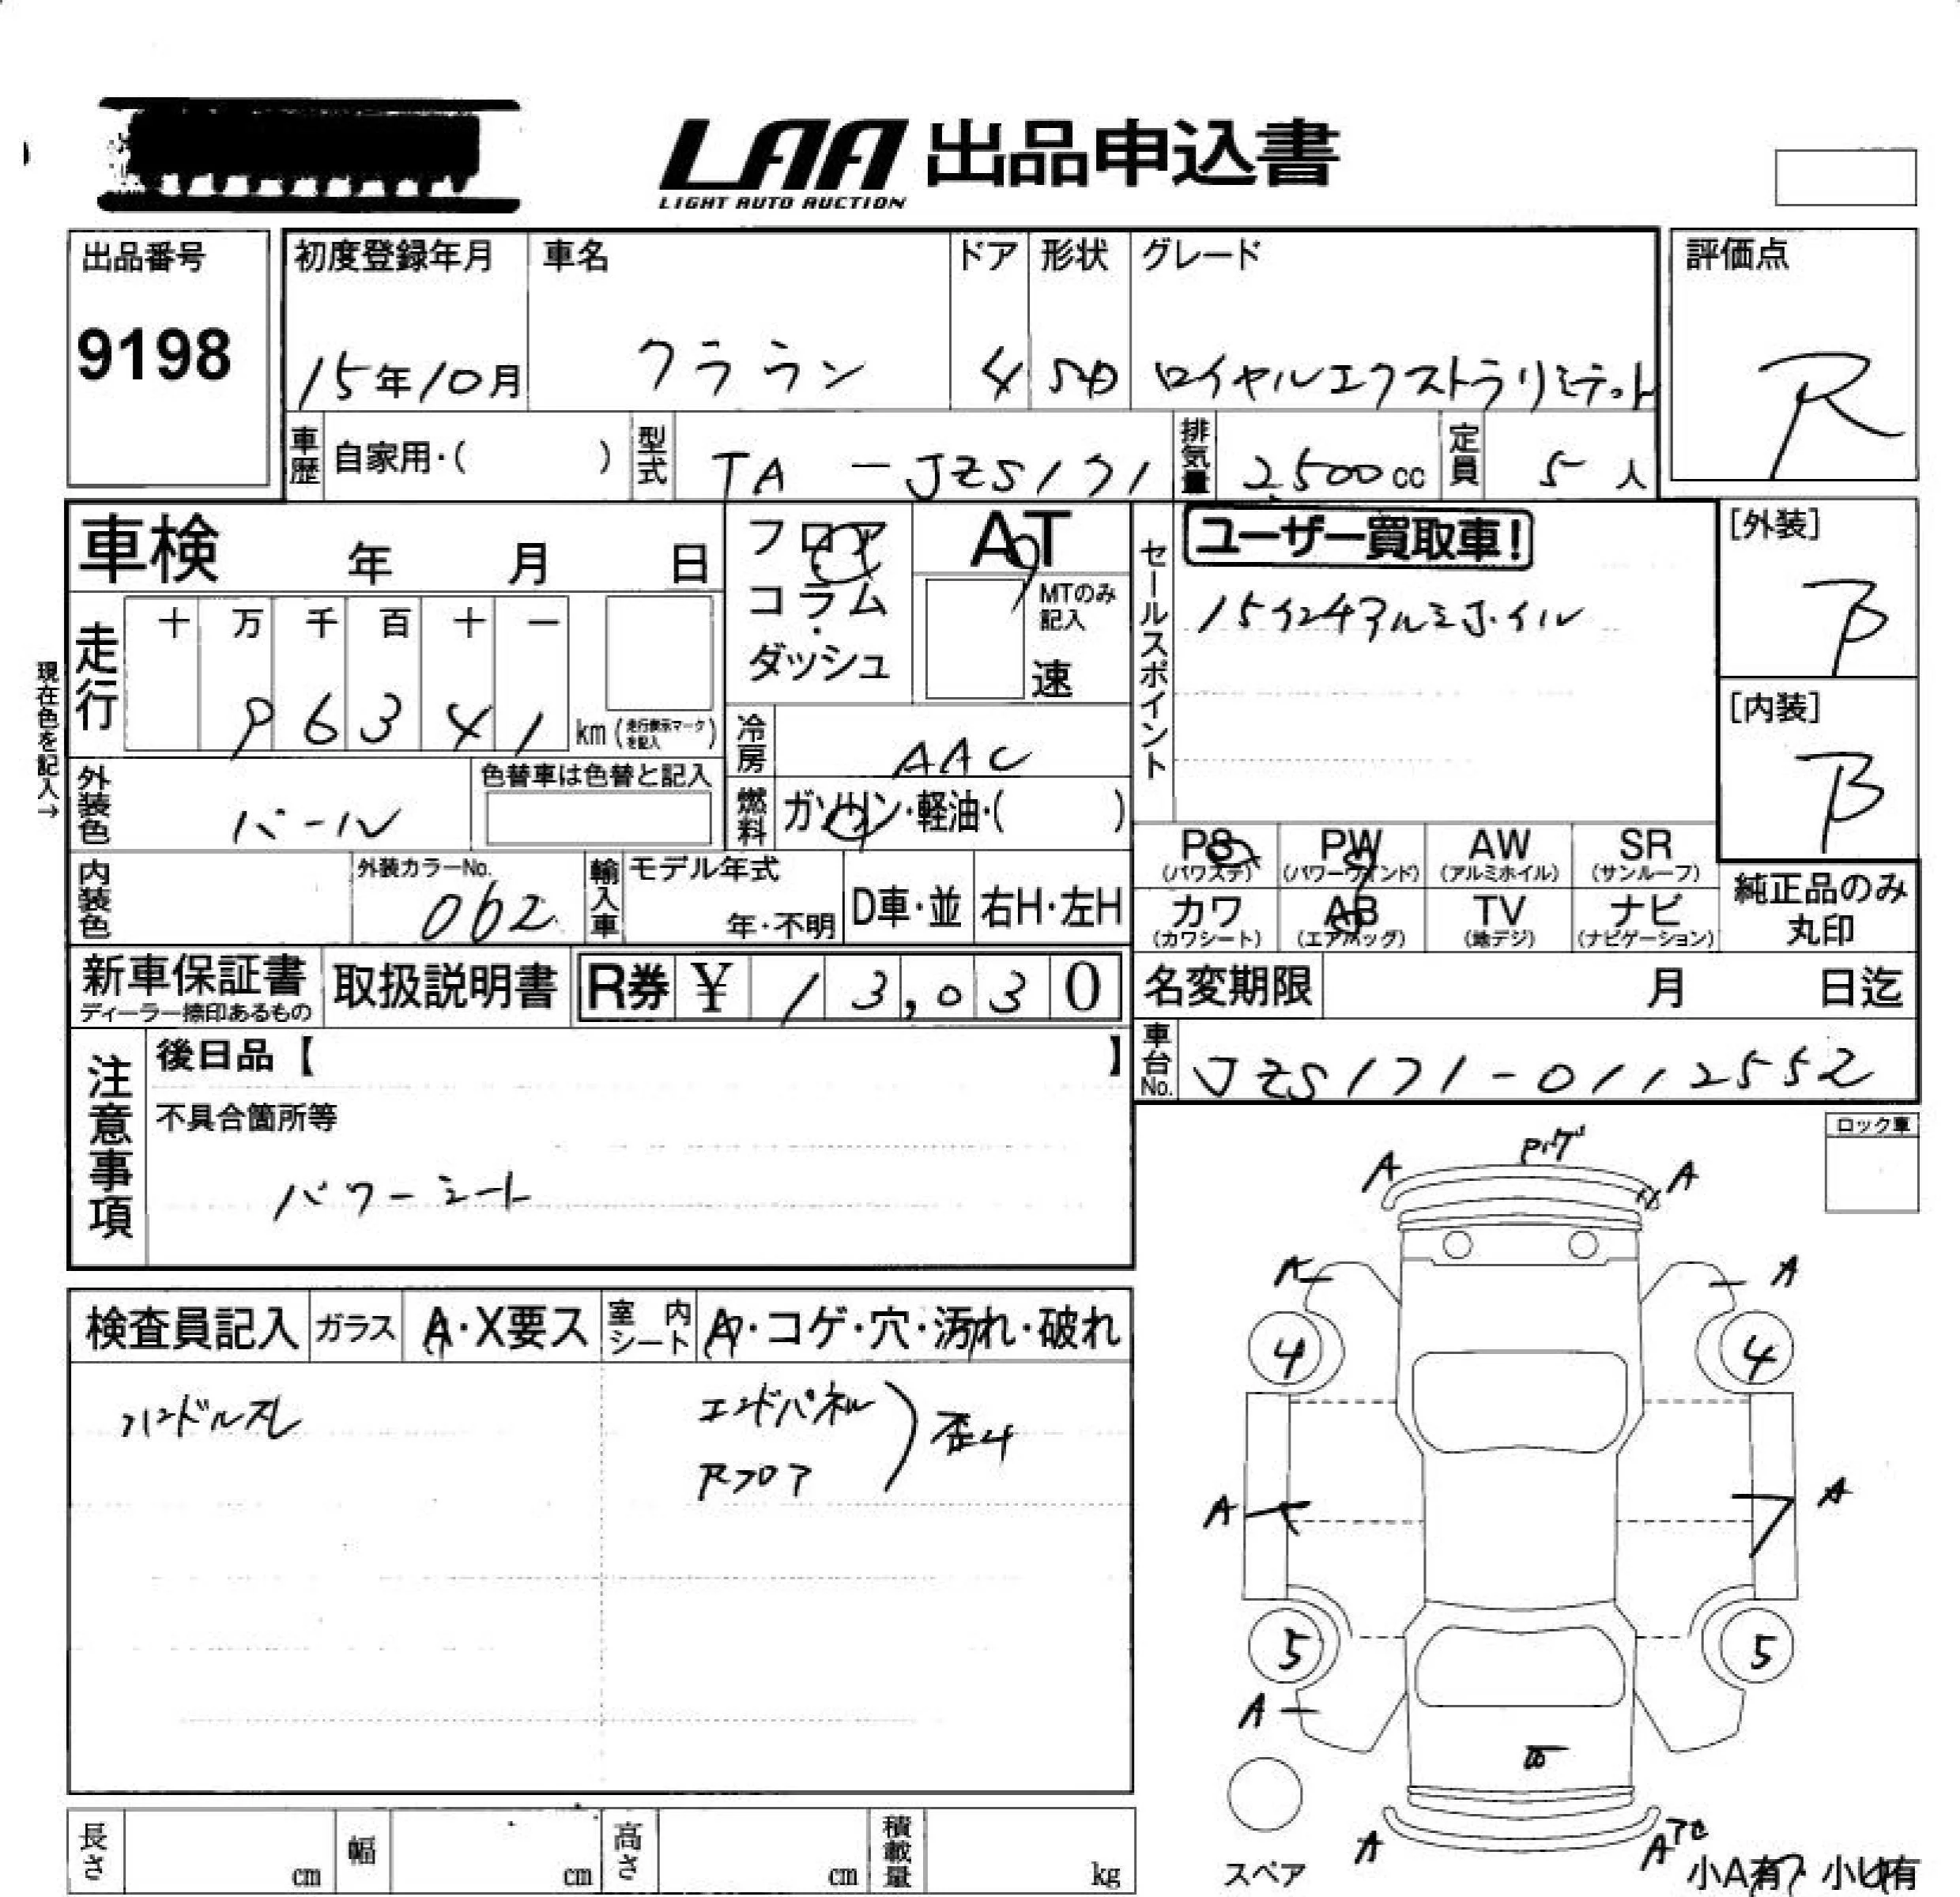 LAA 出品申込書
LIGHT AUTO AUCTION
出品番号
9198
初度登録年月
15年10月
車名
クラウン
ドア
4
形状
SD
グレード
ロイヤルエクストラリミテット
評価点
R
車歴 自家用・( )
型式 TA-JZS171
排気量 2500cc
定員 5人
車検 年 月 日
フロア
コラム・
ダッシュ
AT
MTのみ
記入
速
セールスポイント
ユーザー買取車!
15インチアルミホイル
[外装]
B
[内装]
B
走行
十 万 千 百 十 一
9 6 3 4 1 km (走行表示マークを記入)
現在色を記入→
冷房 AAC
外装色 パール
色替車は色替と記入
燃料 ガソリン・軽油・( )
PS (パワステ)
PW (パワーウインド)
AW (アルミホイル)
SR (サンルーフ)
カワ (カワシート)
AB (エアバッグ)
TV (地デジ)
ナビ (ナビゲーション)
純正品のみ
丸印
内装色
外装カラーNo.
062
輸入車 モデル年式
年・不明
D車・並
右H・左H
新車保証書
ディーラー捺印あるもの
取扱説明書
R券 ¥ 13,030
名変期限 月 日迄
車台No. JZS171-0112552
注意事項
後日品【 】
不具合箇所等
パワーシート
ロック車
検査員記入
ガラス A・X要ス
室内シート A・コゲ・穴・汚れ・破れ
ハンドルスレ
エンドパネル
Rフロア
歪み
A A
A A
4 4
A A
5 5
A
A A
スペア
小A有 小U有
長さ cm
幅 cm
高さ cm
積載量 kg